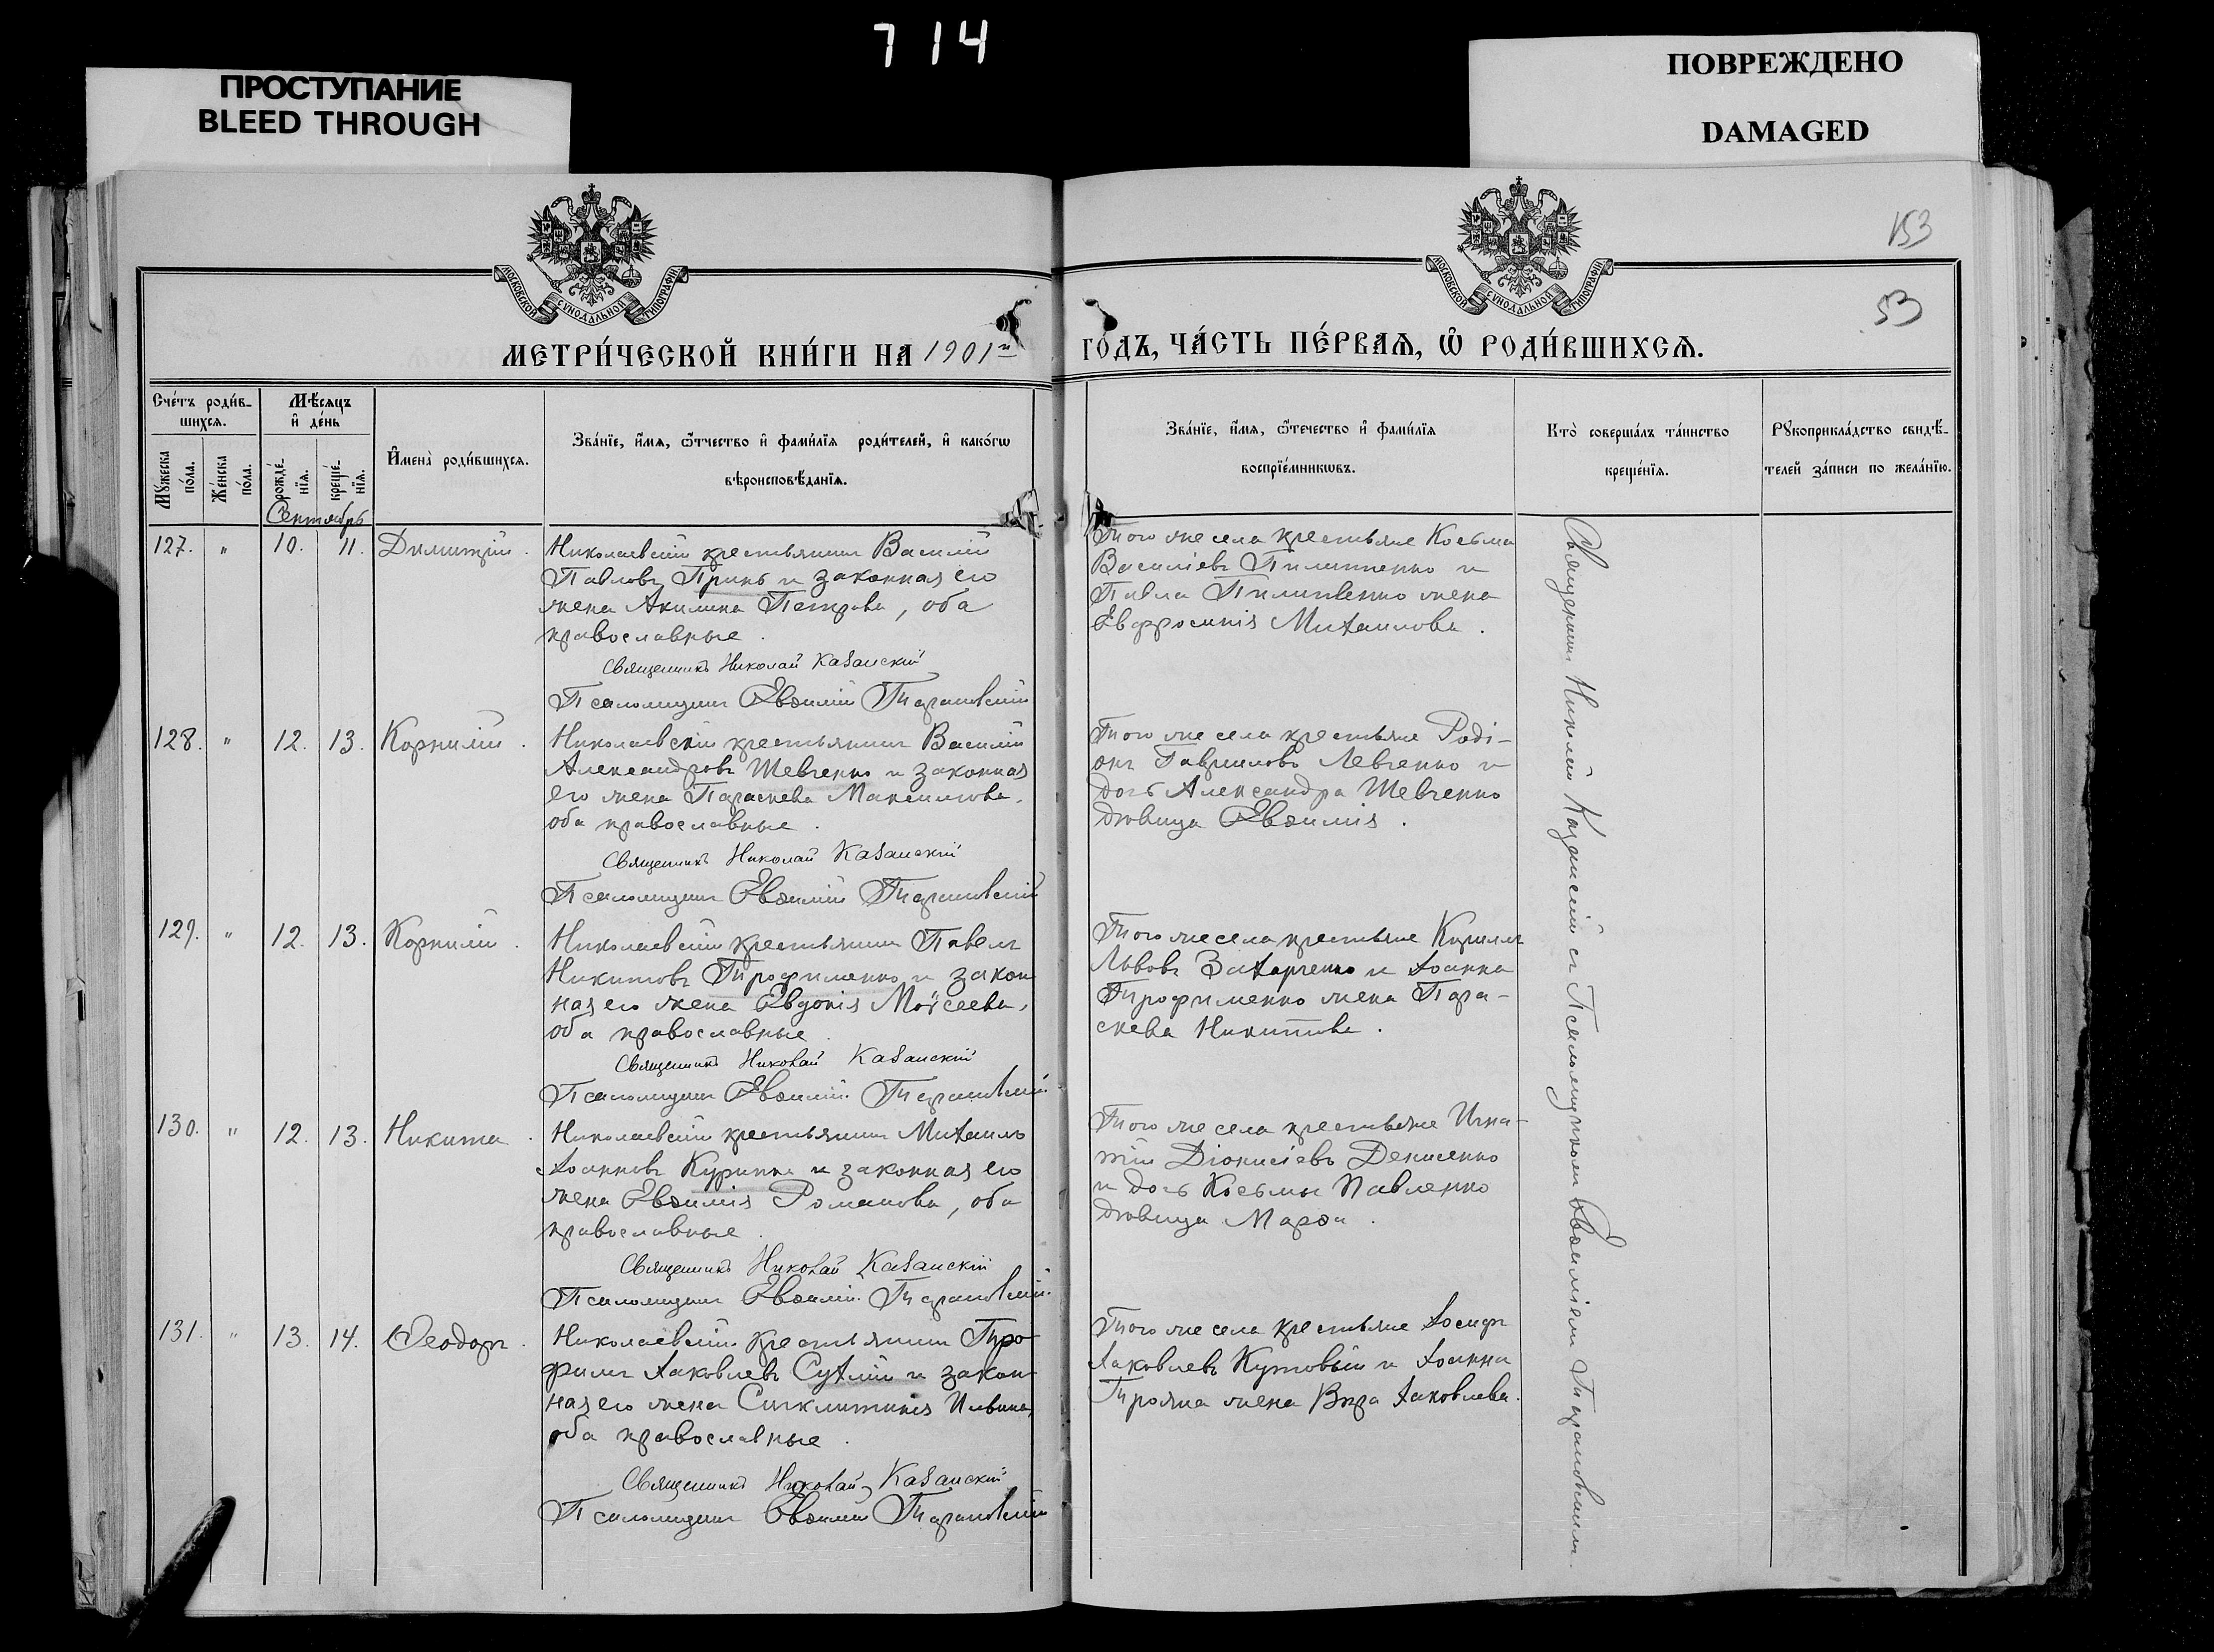 714
ПРОСТУПАНИЕ
BLEED THROUGH
ПОВРЕЖДЕНО
DAMAGED
153
53
МОСКОВСКОЙ СУНОДАЛЬНОЙ ТИПОГРАФІИ
МОСКОВСКОЙ СУНОДАЛЬНОЙ ТИПОГРАФІИ
МЕТРИ́ЧЕСКОЙ КНИ́ГИ НА 1901й ГО́ДЪ, ЧА́СТЬ ПЕ́РВАѦ, Ѡ҃ РОДИ́ВШИХСѦ.
Сче́тъ роди́в-
шихсѧ.
Мѣсѧцъ
и҆ де́нь
Мꙋ́жеска по́ла.
Же́нска по́ла.
рожде́-
нїѧ.
креще́-
нїѧ.
И҆мена̀ роди́вшихсѧ.
Зва́нїе, и҆́мѧ, ѻ҆́тчество и҆ фами́лїѧ роди́телей, и҆ како́гѡ
вѣроисповѣ́данїѧ.
Зва́нїе, и҆́мѧ, ѻ҆́течество и҆ фами́лїѧ
воспрїе́мникѡвъ.
Кто̀ соверша́лъ та́инство
креще́нїѧ.
Рꙋкоприкла́дство свидѣ́-
телей за́писи по жела́нїю.
Сентябрь
127. " 10. 11. Димитрій.
Николаевскій крестьянинъ Василій
Павловъ Принь и законная его
жена Акилина Петрова, оба
православные.
Священникъ Николай Казанскій
Псаломщикъ Евѳимій Тарановскій
Того же села крестьяне Косьма
Василіевъ Пилипенко и
Павла Пилипенко жена
Евфросинія Михаилова.
128. " 12. 13. Корнилій.
Николаевскій крестьянинъ Василій
Александровъ Шевченко и законная
его жена Параскева Максимова,
оба православные.
Священникъ Николай Казанскій
Псаломщикъ Евѳимій Тарановскій
Того же села крестьяне Роді-
онъ Гавриловъ Левченко и
дочь Александра Шевченко
дѣвица Евѳимія.
129. " 12. 13. Корнилій.
Николаевскій крестьянинъ Павелъ
Никитовъ Трофименко и закон-
ная его жена Евдокія Моѵсеева,
оба православные.
Священникъ Николай Казанскій
Псаломщикъ Евѳимій Тарановскій
Того же села крестьяне Кириллъ
Львовъ Захарченко и Іоанна
Трофименко жена Пара-
скева Никитова.
130. " 12. 13. Никита.
Николаевскій крестьянинъ Михаилъ
Іоанновъ Куринный и законная его
жена Евѳимія Романова, оба
православные.
Священникъ Николай Казанскій
Псаломщикъ Евѳимій Тарановскій
Того же села крестьяне Игна-
тій Діонисіевъ Денисенко
и дочь Косьмы Павленко
дѣвица Марѳа.
131. " 13. 14. Ѳеодоръ.
Николаевскій крестьянинъ Тро-
фимъ Іаковлевъ Сухлій и закон-
ная его жена Синклитикія Ильина,
оба православные.
Священникъ Николай Казанскій
Псаломщикъ Евѳимій Тарановскій
Того же села крестьяне Іосифъ
Іаковлевъ Кутовый и Іоанна
Трояна жена Вѣра Іаковлева.
Священникъ Николай Казанскій съ Псаломщикомъ Евѳиміемъ Тарановскимъ.